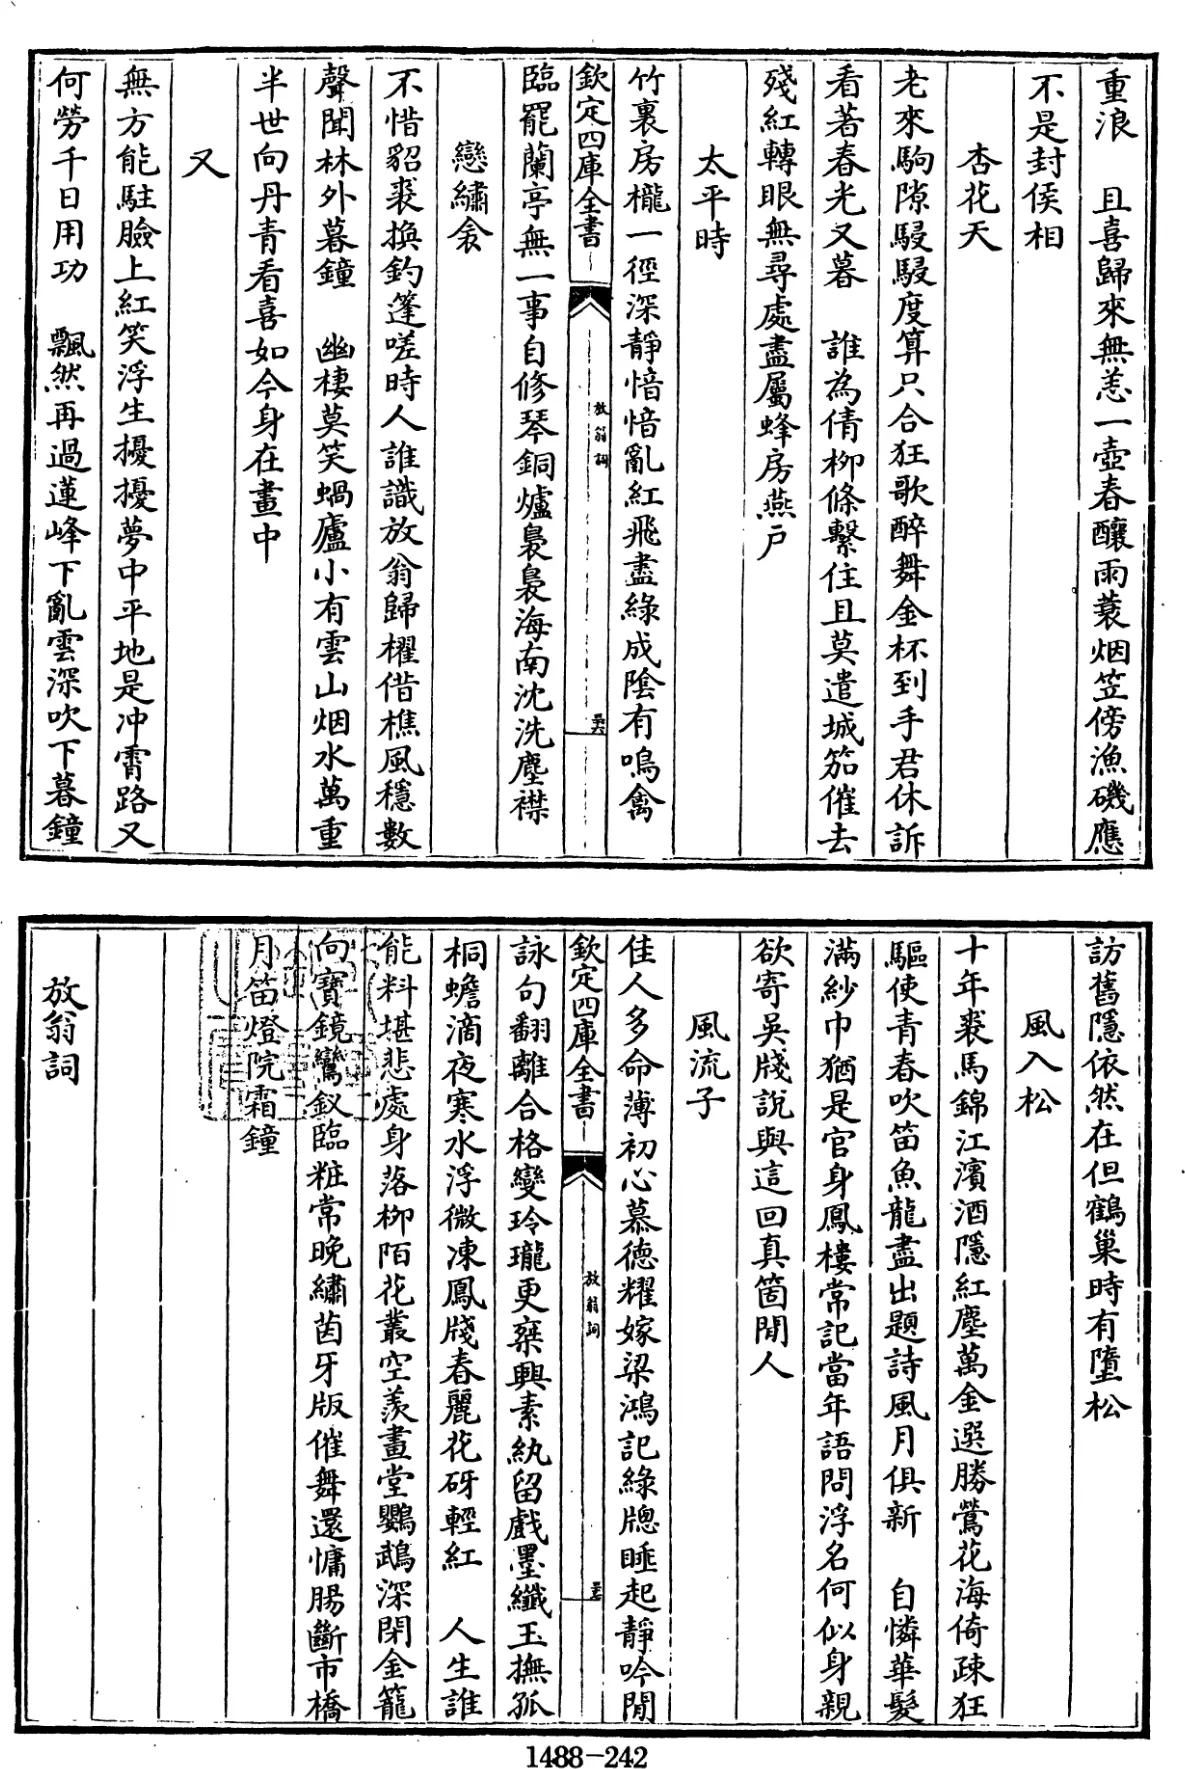 重浪　且喜歸來無恙一壺春釀雨蓑烟笠傍漁磯應
不是封侯相
杏花天
老來駒隙駸駸度算只合狂歌醉舞金杯到手君休訴
看著春光又暮　誰為倩柳條繫住且莫遣城笳催去
殘紅轉眼無尋處盡屬蜂房燕戶
太平時
竹裏房櫳一徑深靜愔愔亂紅飛盡綠成陰有鳴禽
欽定四庫全書
放翁詞
臨罷蘭亭無一事自修琴銅爐裊裊海南沈洗塵襟
戀繡衾
不惜貂裘換釣篷嗟時人誰識放翁歸櫂借樵風穩數
聲聞林外暮鐘　幽棲莫笑蝸廬小有雲山烟水萬重
半世向丹青看喜如今身在畫中
又
無方能駐臉上紅笑浮生擾擾夢中平地是冲霄路又
何勞千日用功　飄然再過蓮峰下亂雲深吹下暮鐘
訪舊隱依然在但鶴巢時有墮松
風入松
十年裘馬錦江濱酒隱紅塵萬金選勝鶯花海倚疎狂
驅使青春吹笛魚龍盡出題詩風月俱新　自憐華髮
滿紗巾猶是官身鳳樓常記當年語問浮名何似身親
欲寄吳牋說與這回真箇閒人
風流子
佳人多命薄初心慕德耀嫁梁鴻記綠牕睡起靜吟閒
欽定四庫全書
放翁詞
詠句翻離合格變玲瓏更乘興素紈留戲墨纖玉撫孤
桐蟾滴夜寒水浮微凍鳳牋春麗花砑輕紅　人生誰
能料堪悲處身落柳陌花叢空羨畫堂鸚鵡深閉金籠
向寶鏡鸞釵臨粧常晚繡茵牙版催舞還慵腸斷市橋
月笛燈院霜鐘
放翁詞
1488-242